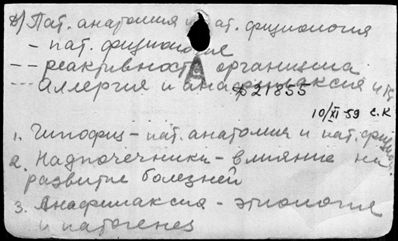 д) Пат. анатомия и пат. физиология
- пат. физиология
-- реактивность организма
--- аллергия и анафилаксия и
А
21855
10/XI 59 С.К
1. Гипофиз - пат. анатомия и пат. физиол.
2. Надпочечники - влияние на
развитие болезней
3. Анафилаксия - этиология
и патогенез